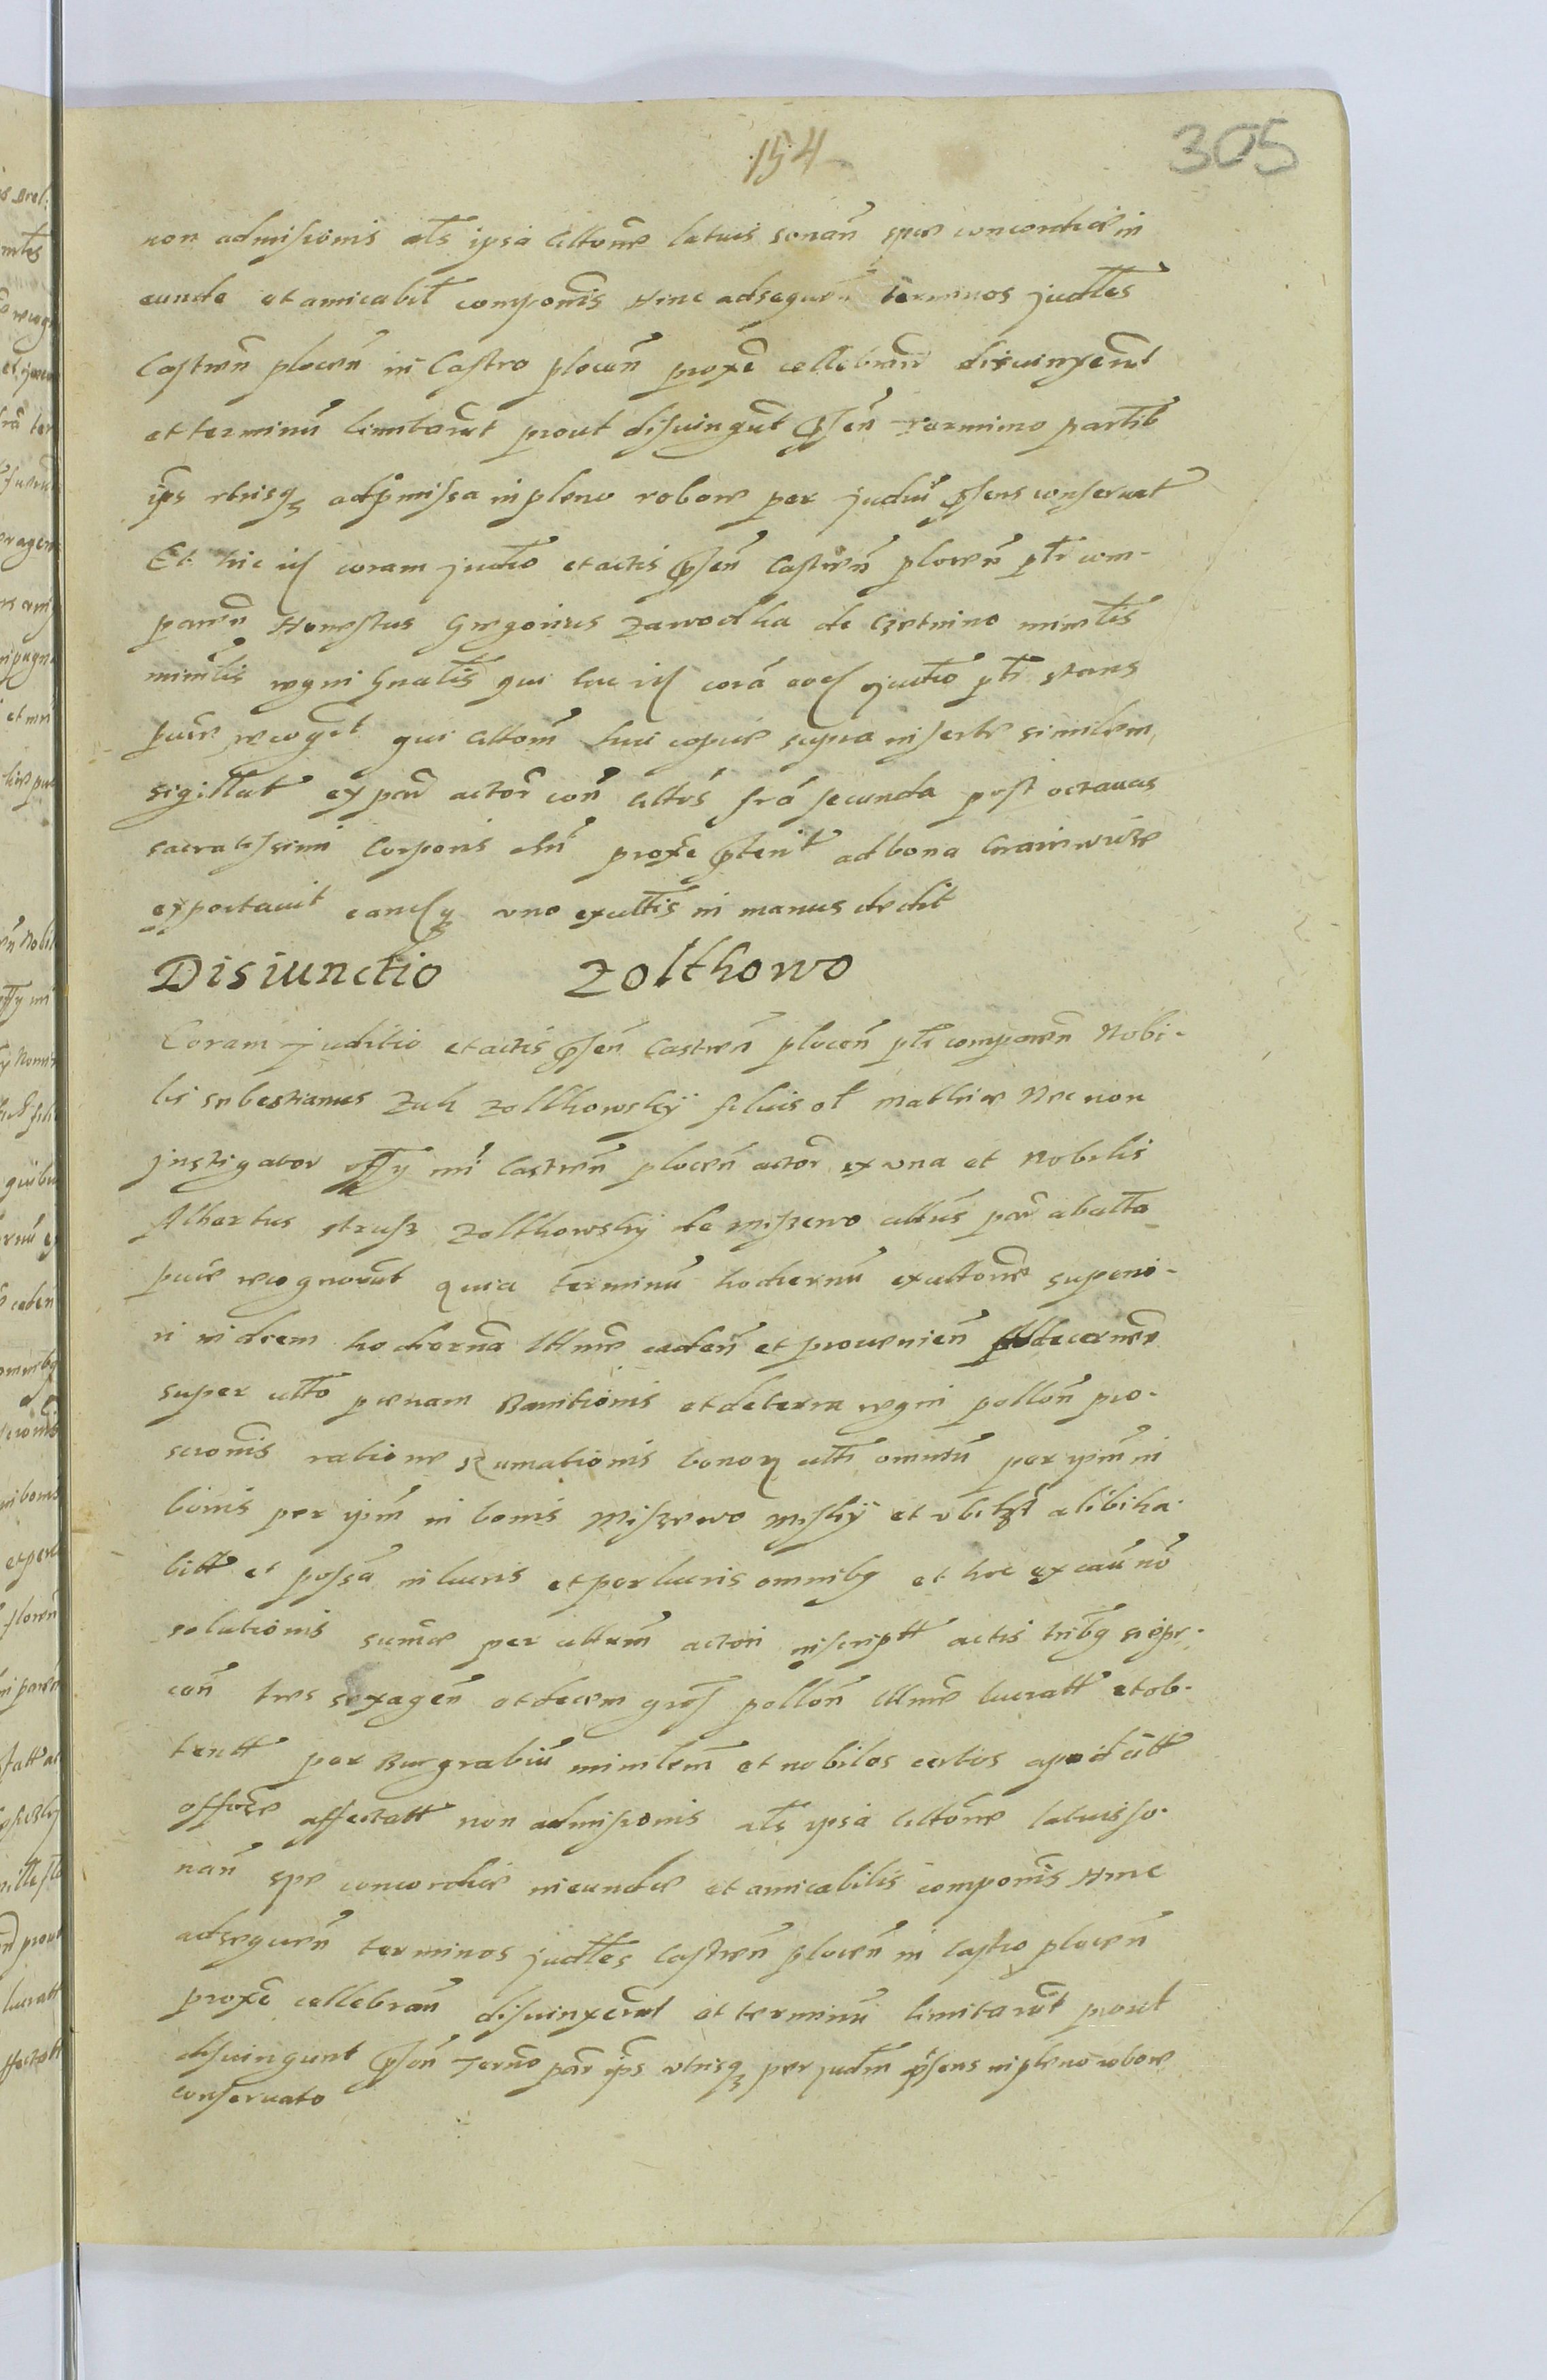 154
305
non admissionis als ipsa Cittone latius sonan spe concordiæ in
eunde et amicabil componis Hinc adsequen terminos judles
Castren plocen in Castro plocen proxe cellebran disiunxerut
et terminu limitarut prout disiungut Psen termino partib
ips utrisq ad pmissa in pleno robore per judiu psens conseruat
Et hic coram juditio et actis psen Castren plocen ptr com-
paren Honestus Gregorius Zawodka de mintlis
minlis regni gnalis qui hic corā juditio ptr stans
pure recogt qui Cittom huic copiæ supra inserte similem
sigillat ex par actor con Cittos frā secunda post octauas
sacratissimi Corporis chri proxe pterit ad bona
exportauit eamq uno ex cittis in manus dedit
Disiunctio Zolthowo
Coram juditio et actis psen Castren plocen ptr comparen Nobi-
lis Sebestianus Zuk Zolthowskÿ filius ol Mathiæ Nec non
jnstigator offy mi Castren plocen actor ex una et Nobilis
Albertus strusz Zolthowskÿ de Miszewo cittus par ab alta
pure recognorut quia terminu hodiernu ex cittone superio-
ri in diem hodierna ltme caden et prouenien ad decernen
super citto pœnam Banitionis et de terra regni pollon pro-
scronis ratione rumationis bonor citti omniu per ipm in
bonis per ipm in bonis Miszewo Miskÿ et ubilzt alibi ha-
bitt et possā in lucris et per lucris omnibq et hoc ex cau no
solutionis sumæ per cittum actori inscriptt actis tribq
con tres sexagen et decem gros pollon ltme lucratt et ob-
tentt per Burgrabiu minlem et nobiles certos apud citt
offore affectatt non admissionis als ipsa Cittone latius so-
nan spe concordiæ ineundæ et amicabilis componis Hinc
adsequen terminos judles Castren plocen in Castro plocen
proxe cellebran disiunxerut et terminu limitarut prout
disiungunt psen Terno par ips utrisq per judm psens in pleno robore
conseruato